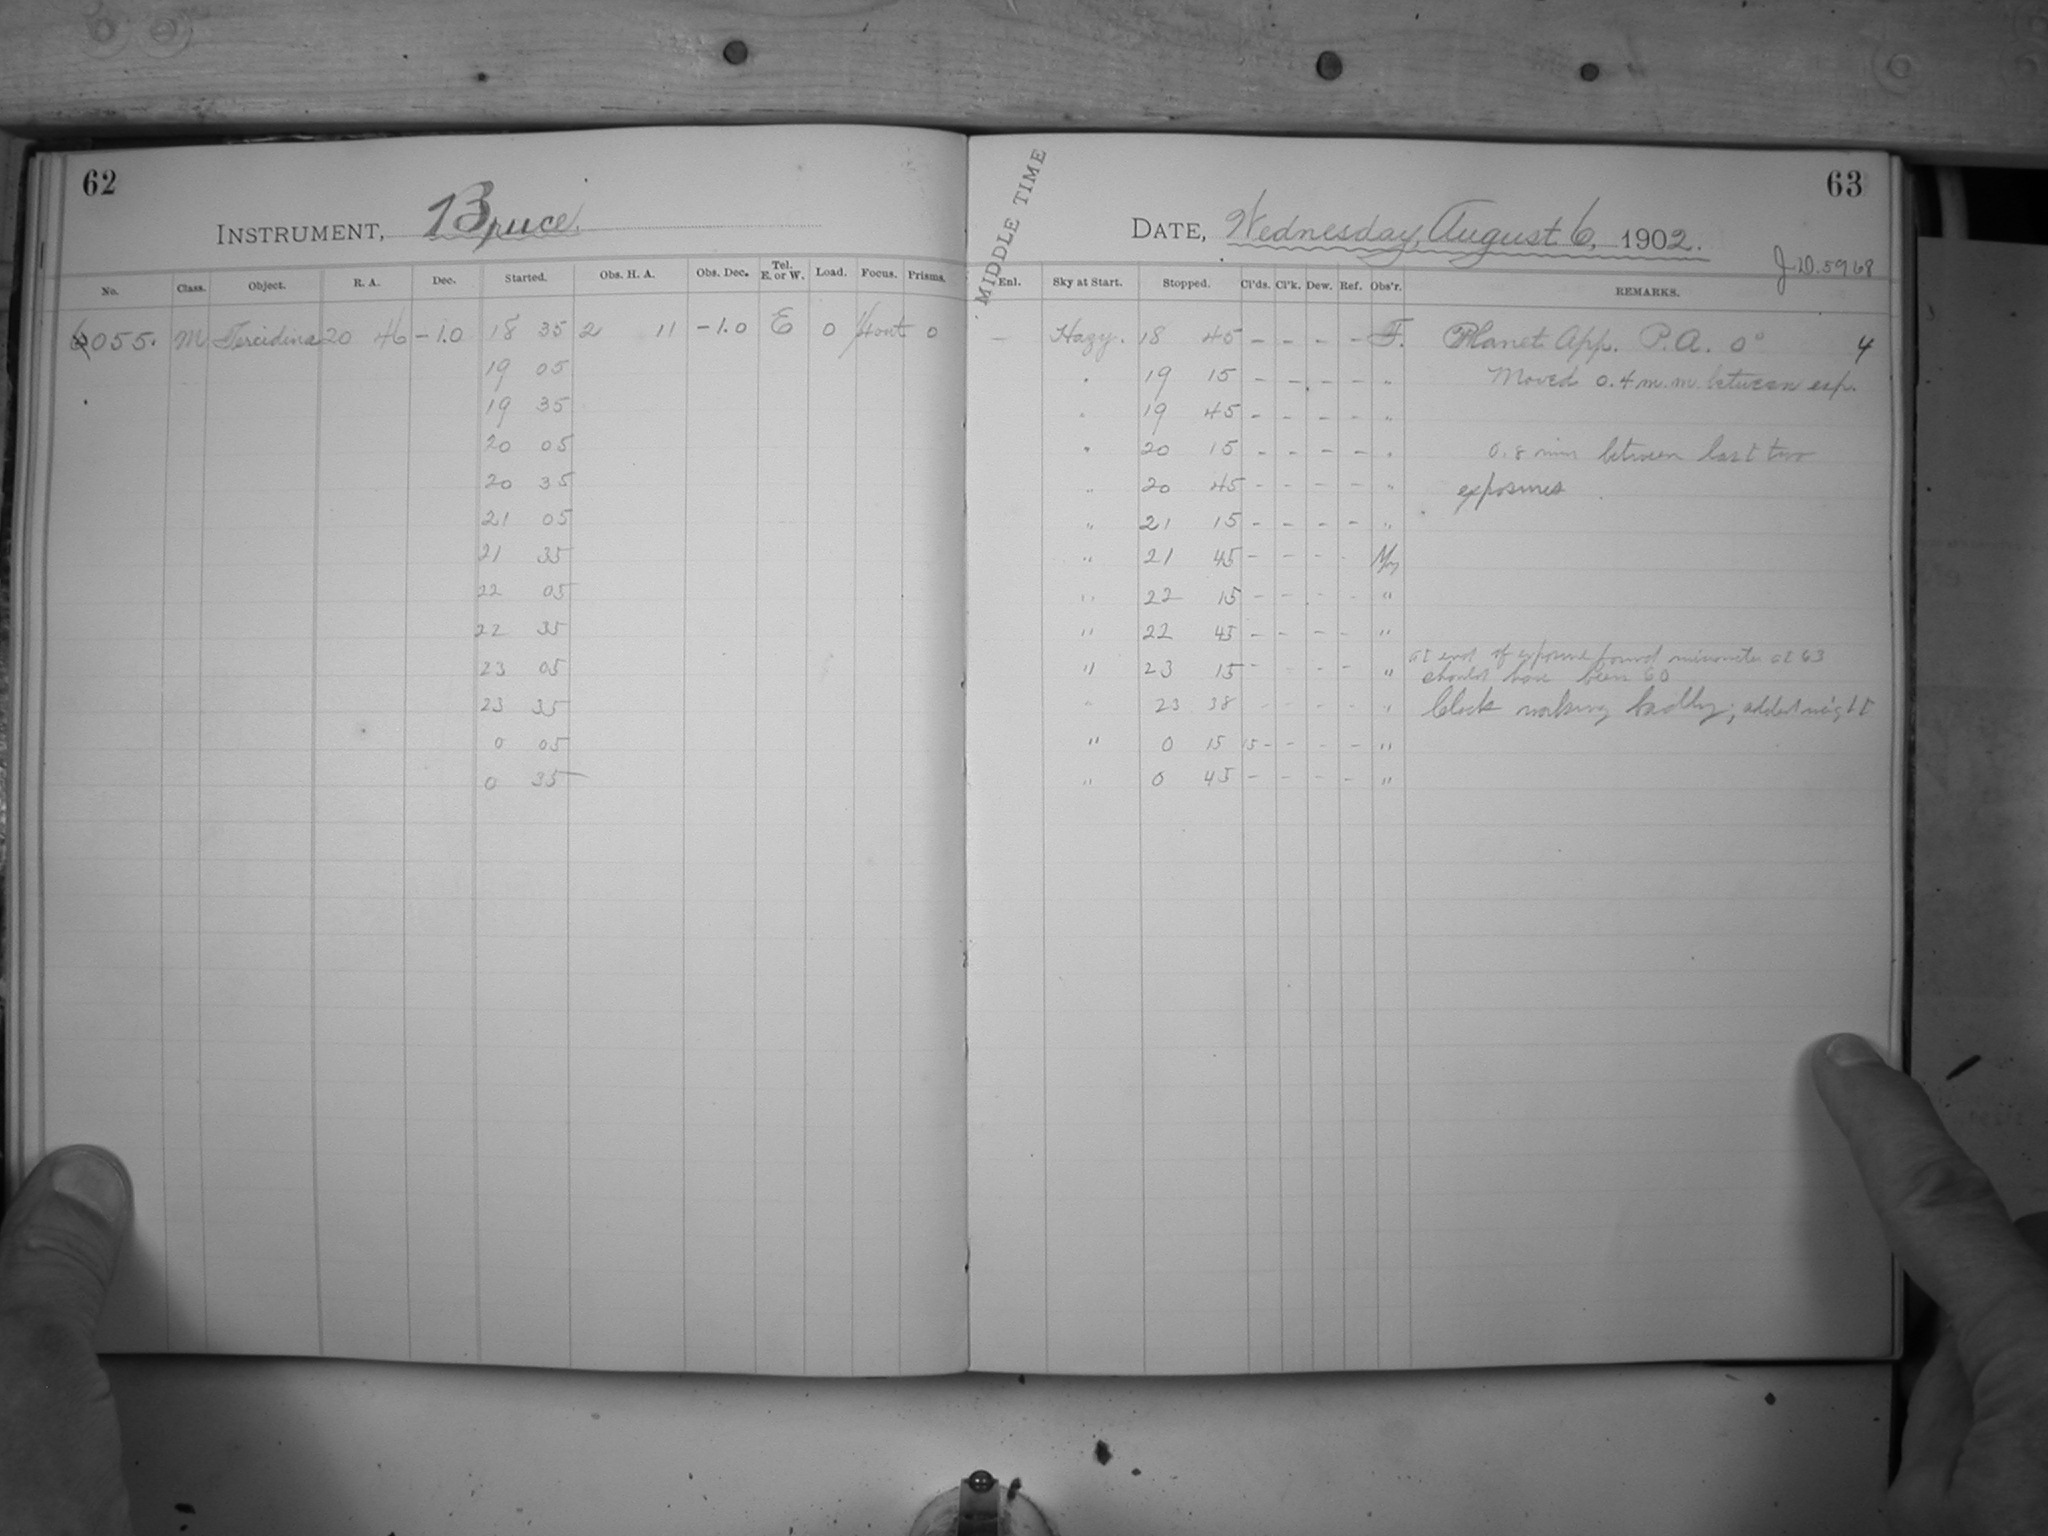 62
INSTRUMENT, Bruce.
No. Class. Object. R. A. Dec. Started. Obs. H. A. Obs. Dec. Tel. E. or W. Load. Focus. Prisms.
6055. M Tercidina 20 46 -1.0 18 35 2 11 -1.0 E 0 0
19 05
19 35
20 05
20 35
21 05
21 35
22 05
22 35
23 05
23 35
0 05
0 35
MIDDLE TIME
63
DATE, Wednesday, August 6, 1902.
J.D. 5968
Enl. Sky at Start. Stopped. Cl'ds. Cl'k. Dew. Ref. Obs'r. REMARKS.
— Hazy. 18 45 - - - - F. Planet App. P.A. 0° 4
" 19 15 - - - - " Moved 0.4 m.m. between exp.
" 19 45 - - - - "
" 20 15 - - - - " 0.8 mm between last two
" 20 45 - - - - " exposures
" 21 15 - - - - "
" 21 45 - - - -
" 22 15 - - - - "
" 22 45 - - - - "
at end of exposure found micrometer at 63
" 23 15 - - - - " should have been 60
" 23 38 - - - - " Clock working badly; added weight
" 0 15 15 - - - - "
" 0 45 - - - - "